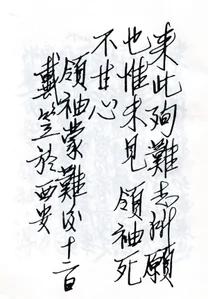 來此殉難志所願
也惟未見 領袖死
不甘心
領袖蒙難後十二日
戴笠於西安